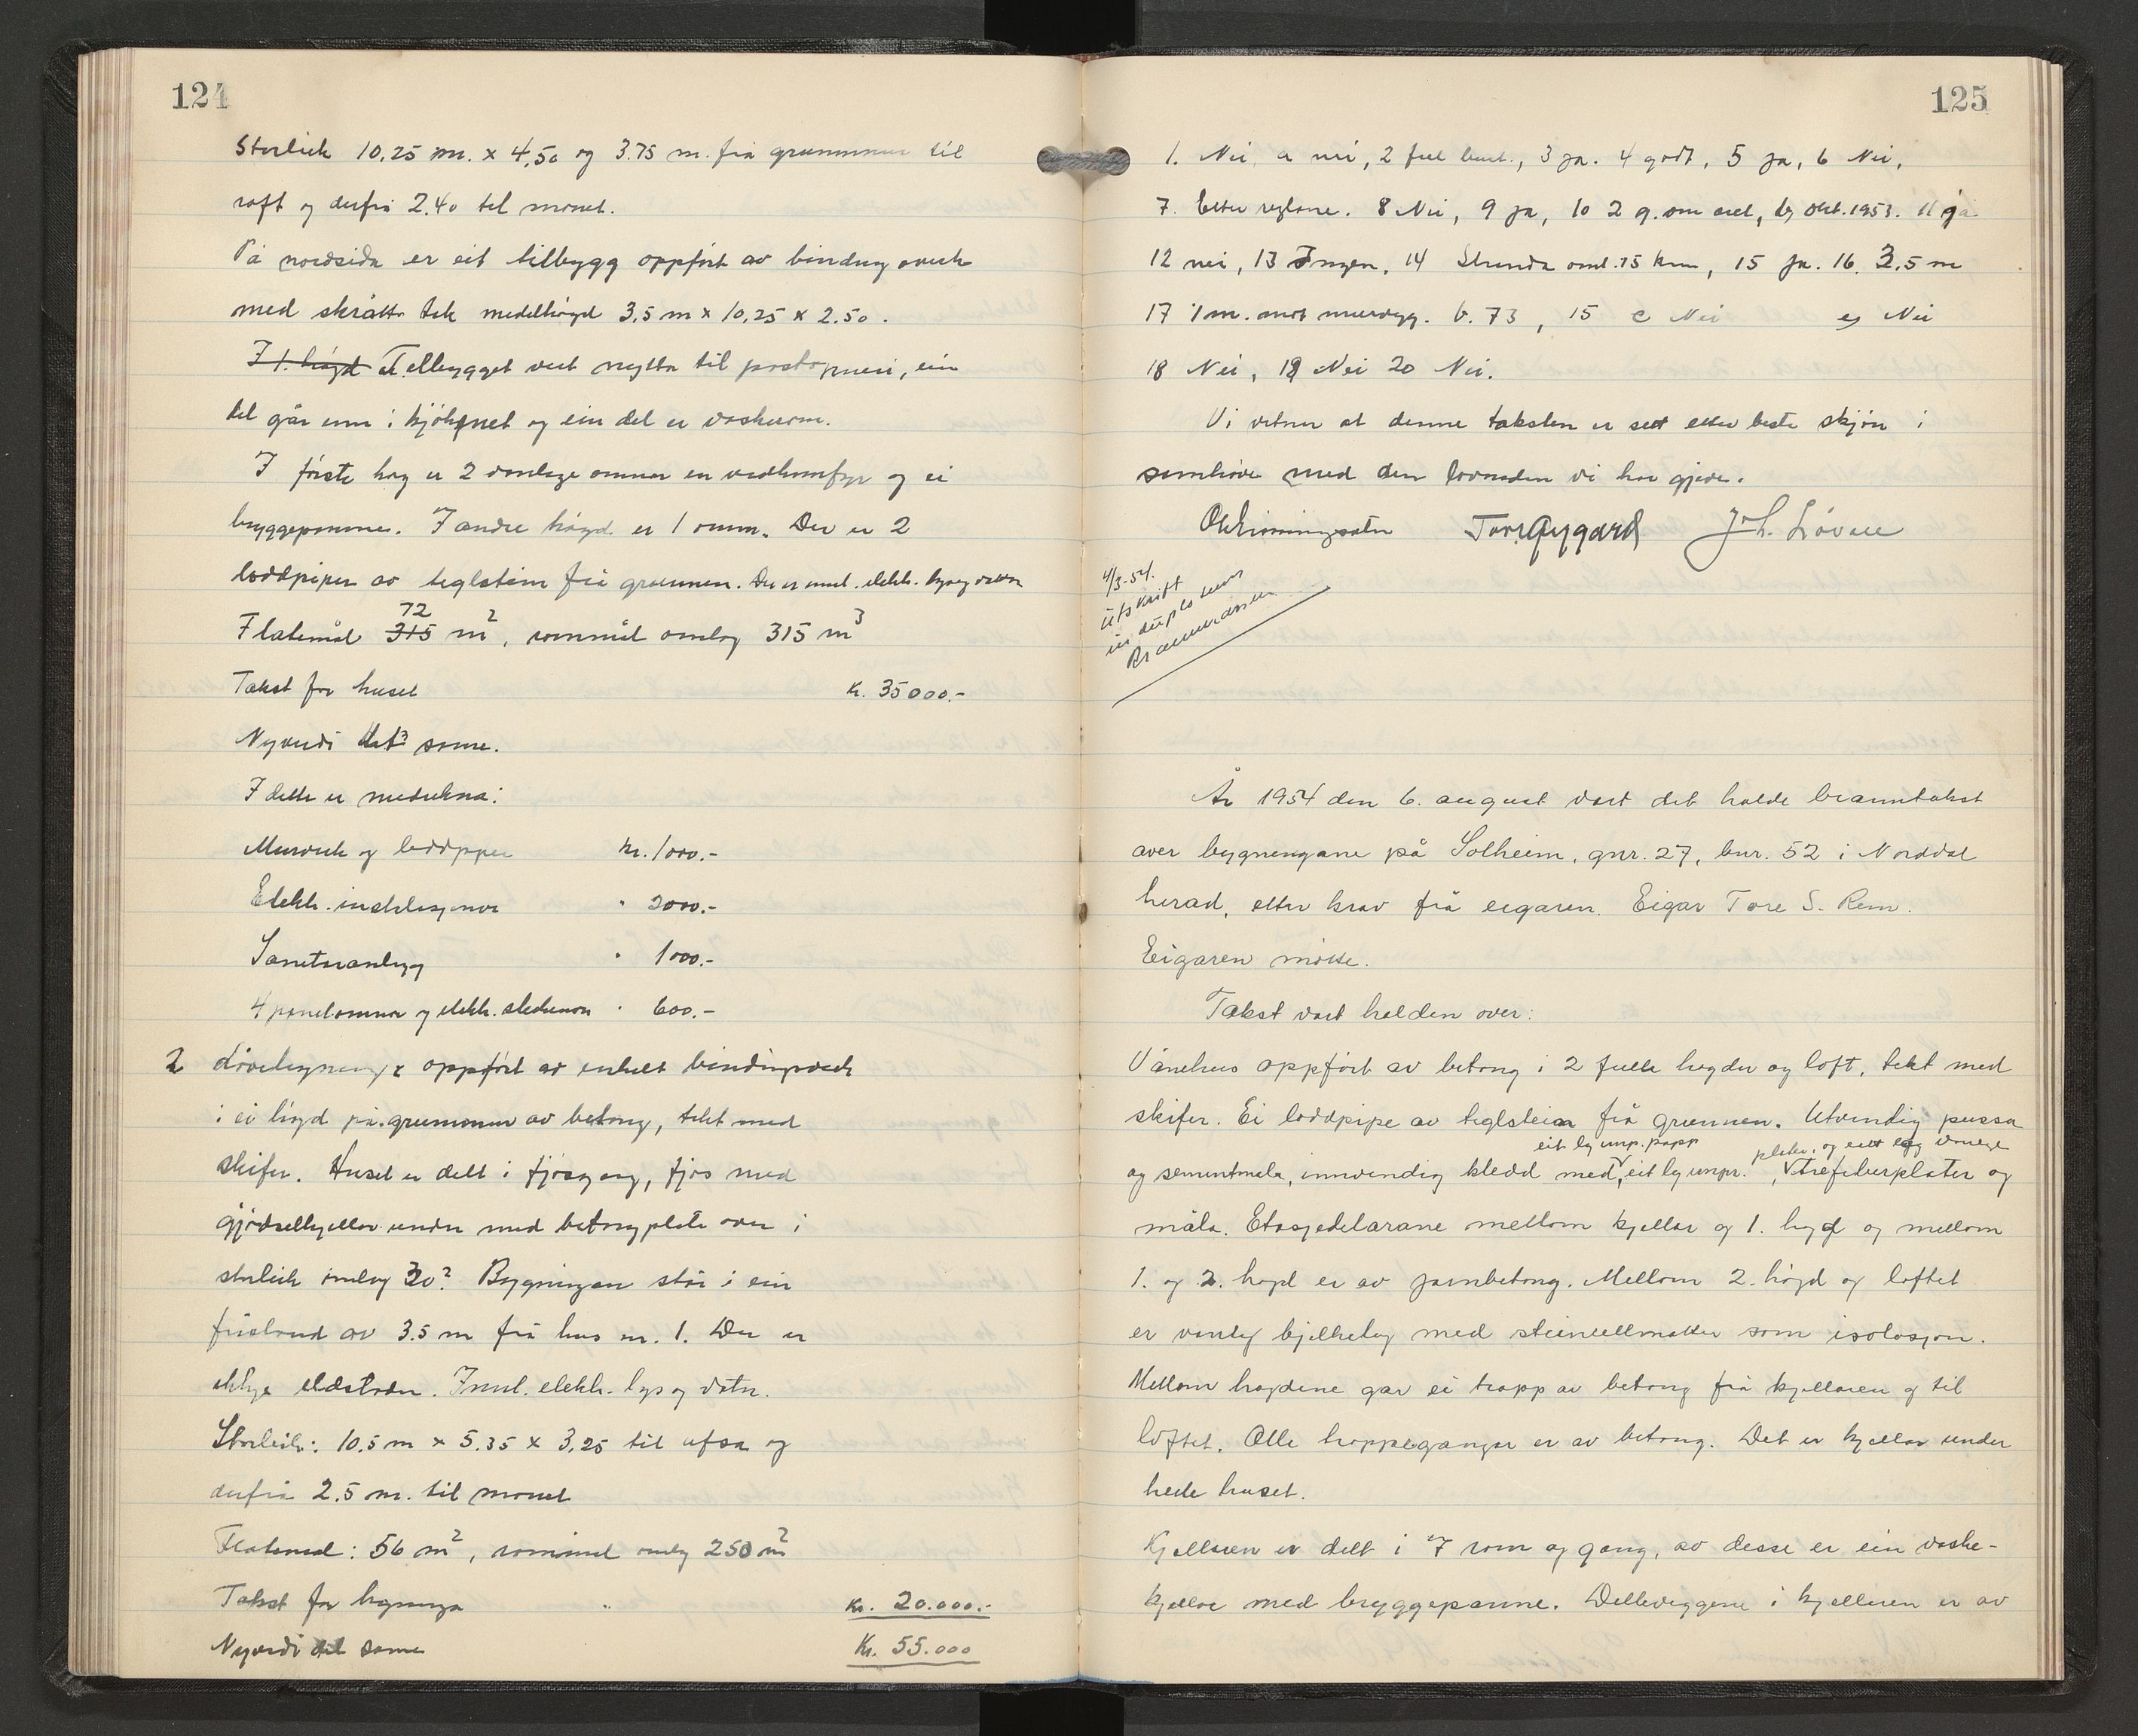 124
Storleik 10,25 m. x 4,50 og 3.75 m. frå grunnmur til
raft og derfrå 2.40 til mønet.
På nordsida er eit tilbygg oppført av bindingsverk
med skråtto tak medelhøgd 3,5 m x 10,25 x 2.50.
I 1. høgd Tilbygget vert nytta til postopneri, ein
del går inn i kjøkenet og ein del er vaskerom.
I første høg er 2 vanlege omnar en vedkomfyr og ei
bryggepanne. I andre høgd er 1 omn. Der er 2
loddpiper av teglstein frå grunnen. Der er innl. elektr. lys og vatn
72
Flatemål 315 m², rommål omlag 315 m³
Takst for huset Kr. 35000.-
Nyverdi det same.
I dette er medrekna:
Murverk og loddpiper Kr. 1000.-
Elektr. installasjonar " 2000.-
Sanitæranlegg " 1000.-
4 panelomnar og elektr. " 600.-
2 Løebygning oppført av enkelt bindingsverk
i ei høgd på grunnmur av betong, tekt med
skifer. Huset er delt i fjøsgang, fjøs med
gjødselkjellar under med betongplate over i
storleik omlag 30² Bygningen står i ein
fråstand av 3.5 m frå hus nr. 1. Der er
ikkje eldstader. Innl. elektr. lys og vatn.
Storleik: 10.5 m x 5.35 x 3,25 til ufsa og
derfrå 2.5 m. til mønet
Flatemål: 56 m², rommål omlag 250 m²
Takst for bygninga Kr. 20.000.-
Nyverdi det same Kr. 55.000
125
1. Nei, a nei, 2 full , 3 ja. 4 godt, 5 ja, 6 Nei,
7. Etter reglane. 8 Nei, 9 ja, 10 2 g. om året, okt. 1953. 11 ja
12 nei, 13 Ingen. 14 Stranda oml. 15 km, 15 ja. 16. 3.5 m
17 1 m. mot murvegg. b. 73, 15 c Nei e) Nei
18 Nei, 19 Nei 20 Nei.
Vi vitner at denne taksten er sett etter beste skjøn i
samhøve med den lovnaden vi har gjeve.
Tore Øygard Joh. Løvoll
4/3-54.
Utskrift
in duplo
Å 1954 den 6. august vart det halde branntakst
over bygningane på Solheim, gnr. 27, bnr. 52 i Norddal
herad, etter krav frå eigaren. Eigar Tore S. Rem.
Eigaren møtte.
Takst vart halden over:
Vånehus oppført av betong i 2 fulle høgder og loft, tekt med
skifer. Ei loddpipe av teglstein frå grunnen. Utvendig pussa
eit lag imp. papp plater, og eitt lag vanlege
og sementmala, innvendig kledd med, eit lag impr. , trefiberplater og
måla. Etasjedelarane mellom kjellar og 1. høgd og mellom
1. og 2. høgd er av jarnbetong. Mellom 2. høgd og loftet
er vanleg bjelkelag med steinullmatter som isolasjon.
Mellom høgdene går ei trapp av betong frå kjellaren og til
loftet. Alle trappeganger er av betong. Det er kjellar under
heile huset.
Kjellaren er delt i 7 rom og gang, av desse er ein vaske-
kjellar med bryggepanne. Delleveggene i kjelleren er av